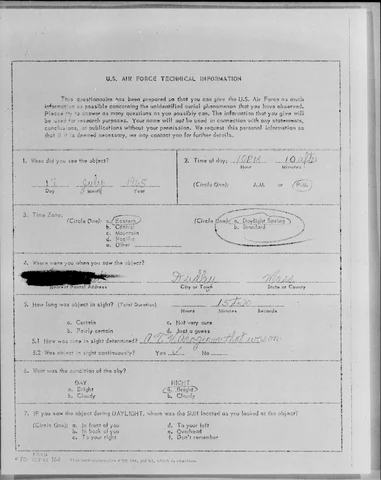 U.S. AIR FORCE TECHNICAL INFORMATION
This questionnaire has been prepared so that you can give the U.S. Air Force as much
information as possible concerning the unidentified aerial phenomenon that you have observed.
Please try to answer as many questions as you possibly can. The information that you give will
be used for research purposes. Your name will not be used in connection with any statements,
conclusions, or publications without your permission. We request this personal information so
that if it is deemed necessary, we may contact you for further details.
1. When did you see the object? 2. Time of day: 10PM 10
Hour Minutes
1965
Day Month Year
(Circle One): A.M. or P.M.
3. Time Zone:
(Circle One): a. Eastern (Circle One): a. Daylight Saving
b. Central b. Standard
c. Mountain
d. Pacific
e. Other
4. Where were you when you saw the object?
Dudley Mass
Nearest Postal Address City or Town State or County
5. How long was object in sight? (Total Duration) 15
Hours Minutes Seconds
a. Certain c. Not very sure
b. Fairly certain d. Just a guess
5.1 How was time in sight determined?
5.2 Was object in sight continuously? Yes ✓ No
6. What was the condition of the sky?
DAY NIGHT
a. Bright a. Bright
b. Cloudy b. Cloudy
7. IF you saw the object during DAYLIGHT, where was the SUN located as you looked at the object?
(Circle One): a. In front of you d. To your left
b. In back of you e. Overhead
c. To your right f. Don't remember
FORM